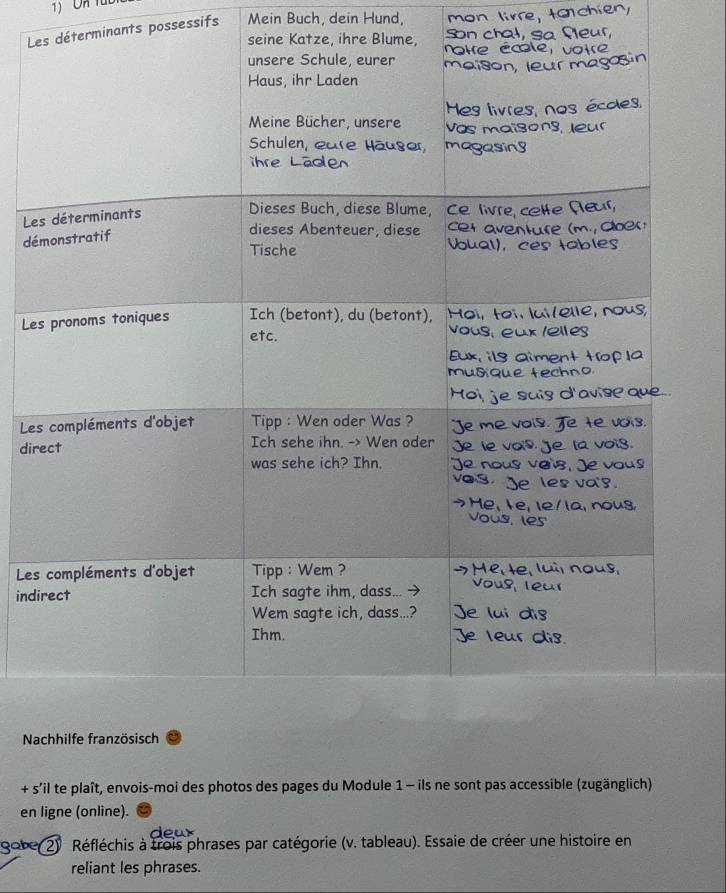 1) Un
Les déterminants possessifs
Mein Buch, dein Hund,
seine Katze, ihre Blume,
unsere Schule, eurer
Haus, ihr Laden
Meine Bücher, unsere
Schulen, eure Häuser,
ihre Läden
mon livre, ton chien,
son chat, sa fleur,
notre école, votre
maison, leur magasin
Mes livres, nos écoles,
vos maisons, leur
magasins
Les déterminants
démonstratif
Dieses Buch, diese Blume,
dieses Abenteuer, diese
Tische
Ce livre, cette fleur,
cet aventure (m., aber
Vokal), ces tables
Les pronoms toniques
Ich (betont), du (betont),
etc.
Moi, toi, lui/elle, nous,
vous, eux/elles
Eux, ils aiment trop la
musique techno.
Moi, je suis d'avise que...
Les compléments d'objet
direct
Tipp : Wen oder Was ?
Ich sehe ihn. -> Wen oder
was sehe ich? Ihn.
Je me vois. Je te vois.
Je le vois. Je la vois.
Je nous vois, Je vous
vois. Je les vois.
→ Me, te, le/la, nous,
vous, les
Les compléments d'objet
indirect
Tipp : Wem ?
Ich sagte ihm, dass... →
Wem sagte ich, dass...?
Ihm.
→ Me, te, lui, nous,
vous, leur
Je lui dis
Je leur dis.
Nachhilfe französisch 😊
+ s'il te plaît, envois-moi des photos des pages du Module 1 – ils ne sont pas accessible (zugänglich)
en ligne (online). 😊
deux
gabe 2) Réfléchis à trois phrases par catégorie (v. tableau). Essaie de créer une histoire en
reliant les phrases.